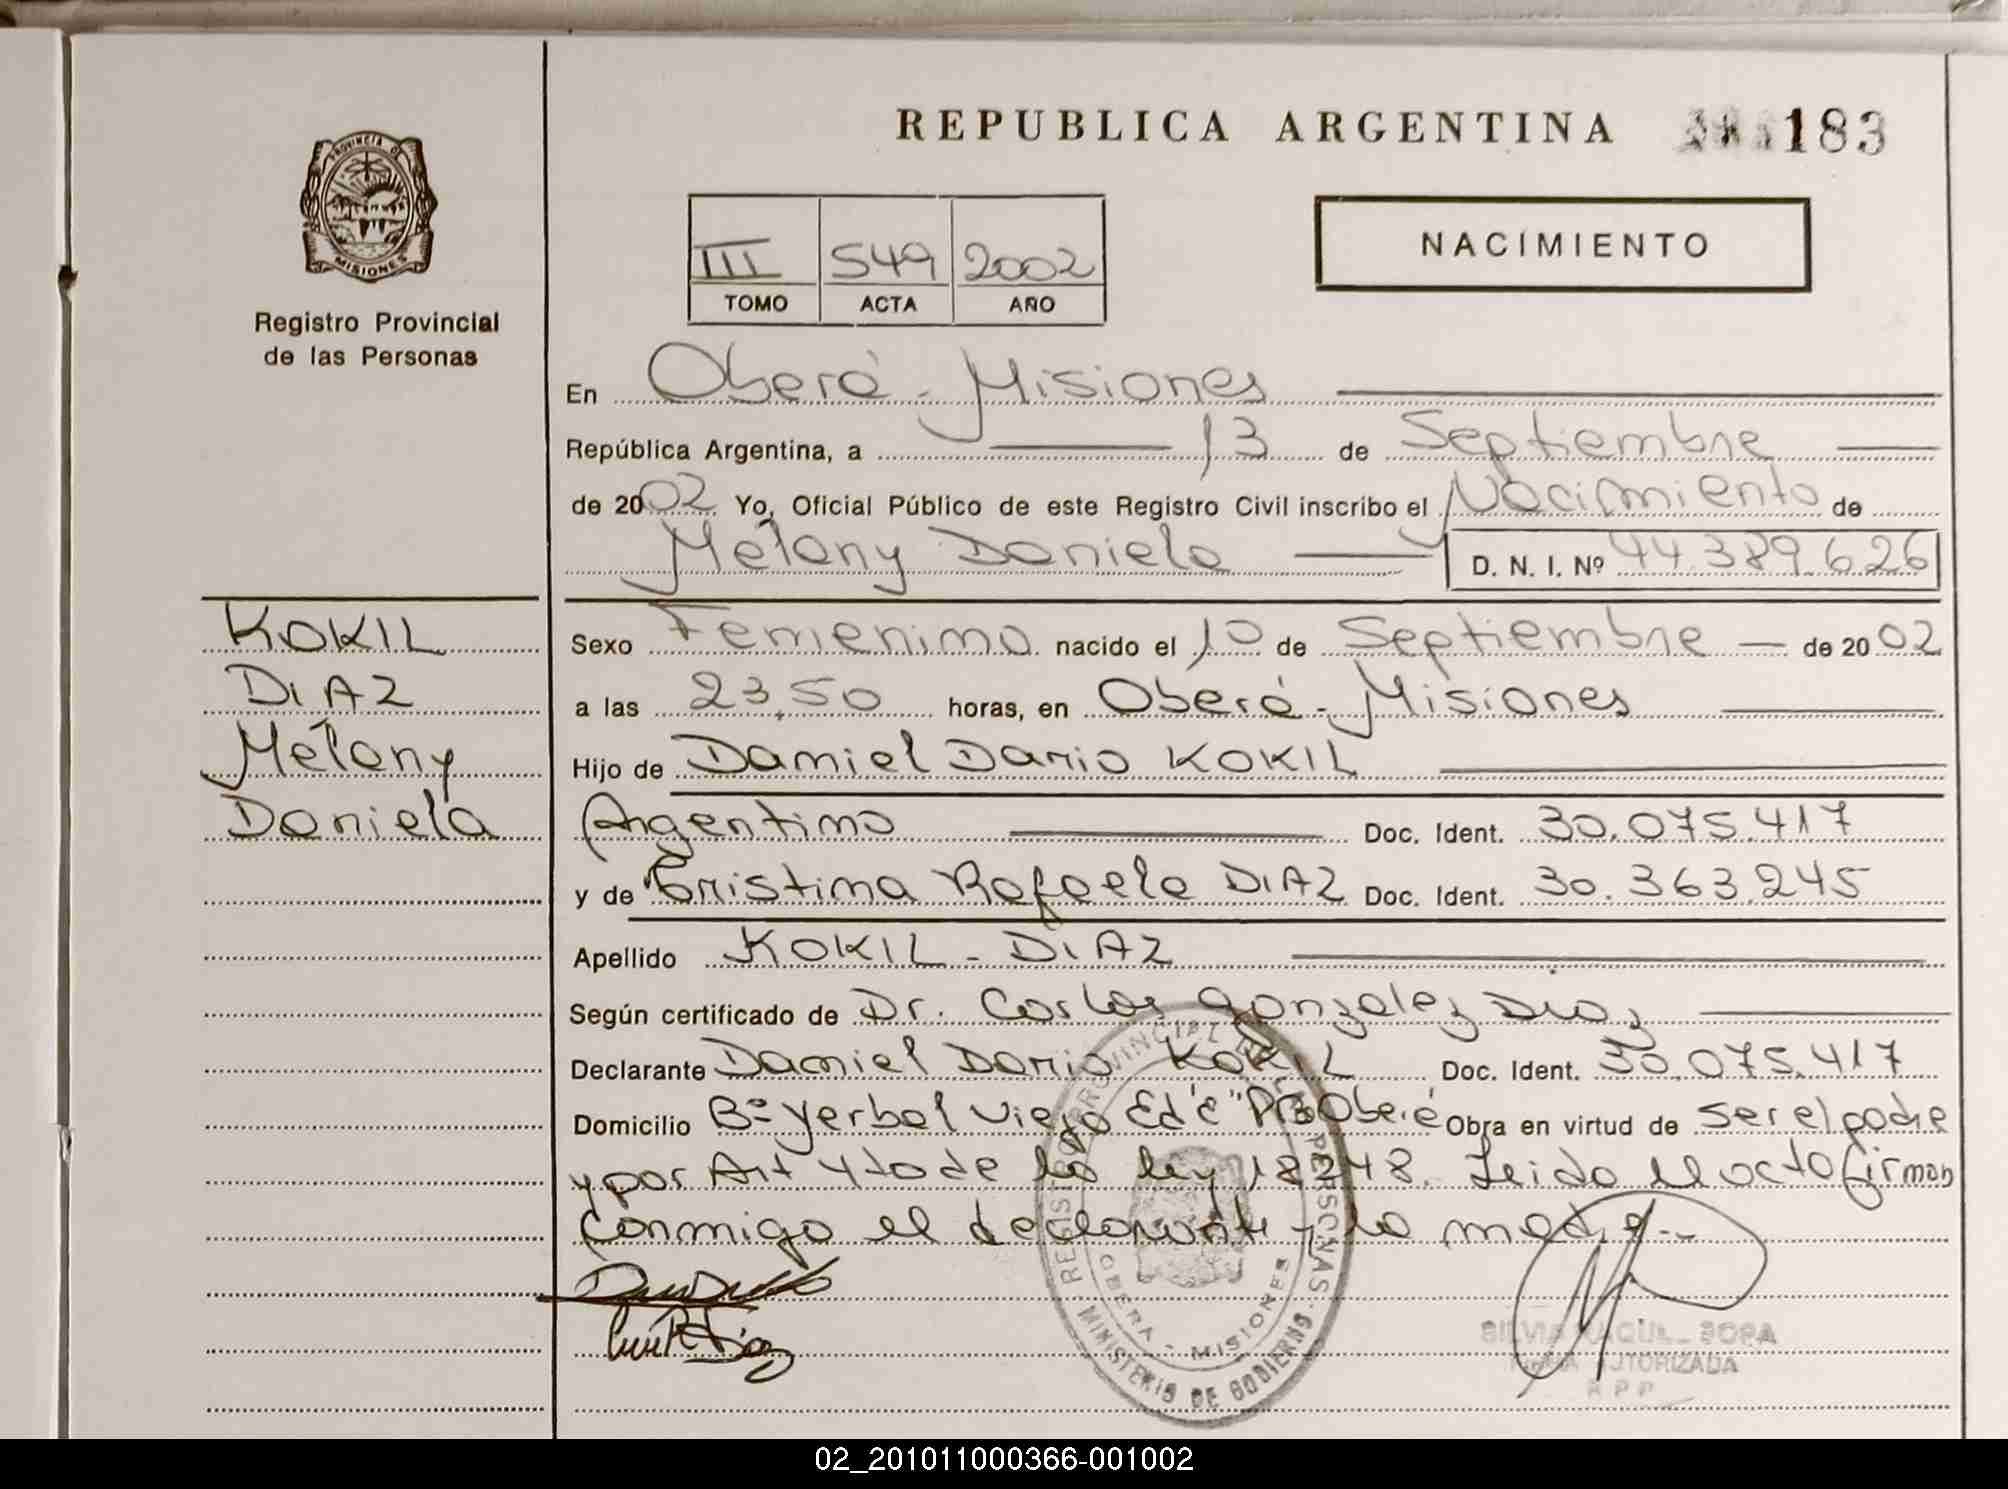 REPUBLICA ARGENTINA 183
PROVINCIA DE
MISIONES
Registro Provincial
de las Personas
NACIMIENTO
III 549 2002
TOMO ACTA AÑO
En Oberá - Misiones
República Argentina, a 13 de Septiembre
de 2002 Yo, Oficial Público de este Registro Civil inscribo el Nacimiento de
Melany Daniela D. N. I. Nº 44.389.626
KOKIL
DIAZ
Melany
Daniela
Sexo Femenino nacido el 10 de Septiembre de 2002
a las 23,50 horas, en Oberá - Misiones
Hijo de Daniel Dario KOKIL
Argentino Doc. Ident. 30.075.417
y de Cristina Rafaela DIAZ Doc. Ident. 30.363.245
Apellido KOKIL - DIAZ
Según certificado de Dr. Carlos Gonzalez Diaz
Declarante Daniel Dario KOKIL Doc. Ident. 30.075.417
Domicilio Bº Yerbal Viejo Ed "C" Oberá Obra en virtud de ser el padre
y por Art 4 to de la ley 18248. Leido el acta firman
conmigo el declarante y la madre
REGISTRO PROVINCIAL DE LAS PERSONAS
OBERA - MISIONES
MINISTERIO DE GOBIERNO
SILVIA RAQUEL SOPA
FIRMA AUTORIZADA
R P P
02_201011000366-001002